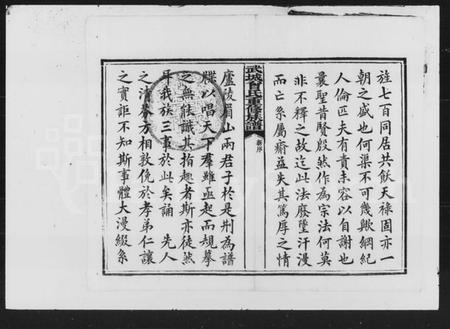 旌七百同居共飲天祿固亦一
朝之盛也何渠不可幾歟綱紀
人倫匹夫有責未容以自謝也
曩聖昔賢殷然作為宗法何莫
非不釋之故迄此法廢墜汗漫
而亡系屬瘠益失其篤厚之情
武城曾氏重修族譜
舊序
廬陵眉山兩君子於是刱為譜
牒以唱天下羣雖亟起而規摹
之無能識其抬趣者斯亦徒然
耳我族三事於此矣誦 先人
之清芬方相敦俛於孝弟仁讓
之實詎不知斯事體大漫綴系